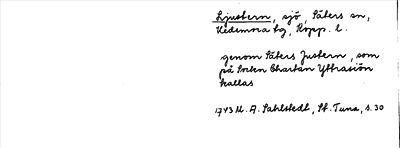 Ljustern, sjö, Säters sn,
Hedemora tg, Kopp. l.
genom Säters Justern, som
på Socken Chartan Yttrasiön
kallas
1743 M. A. Sahlstedt, St. Tuna, s. 30